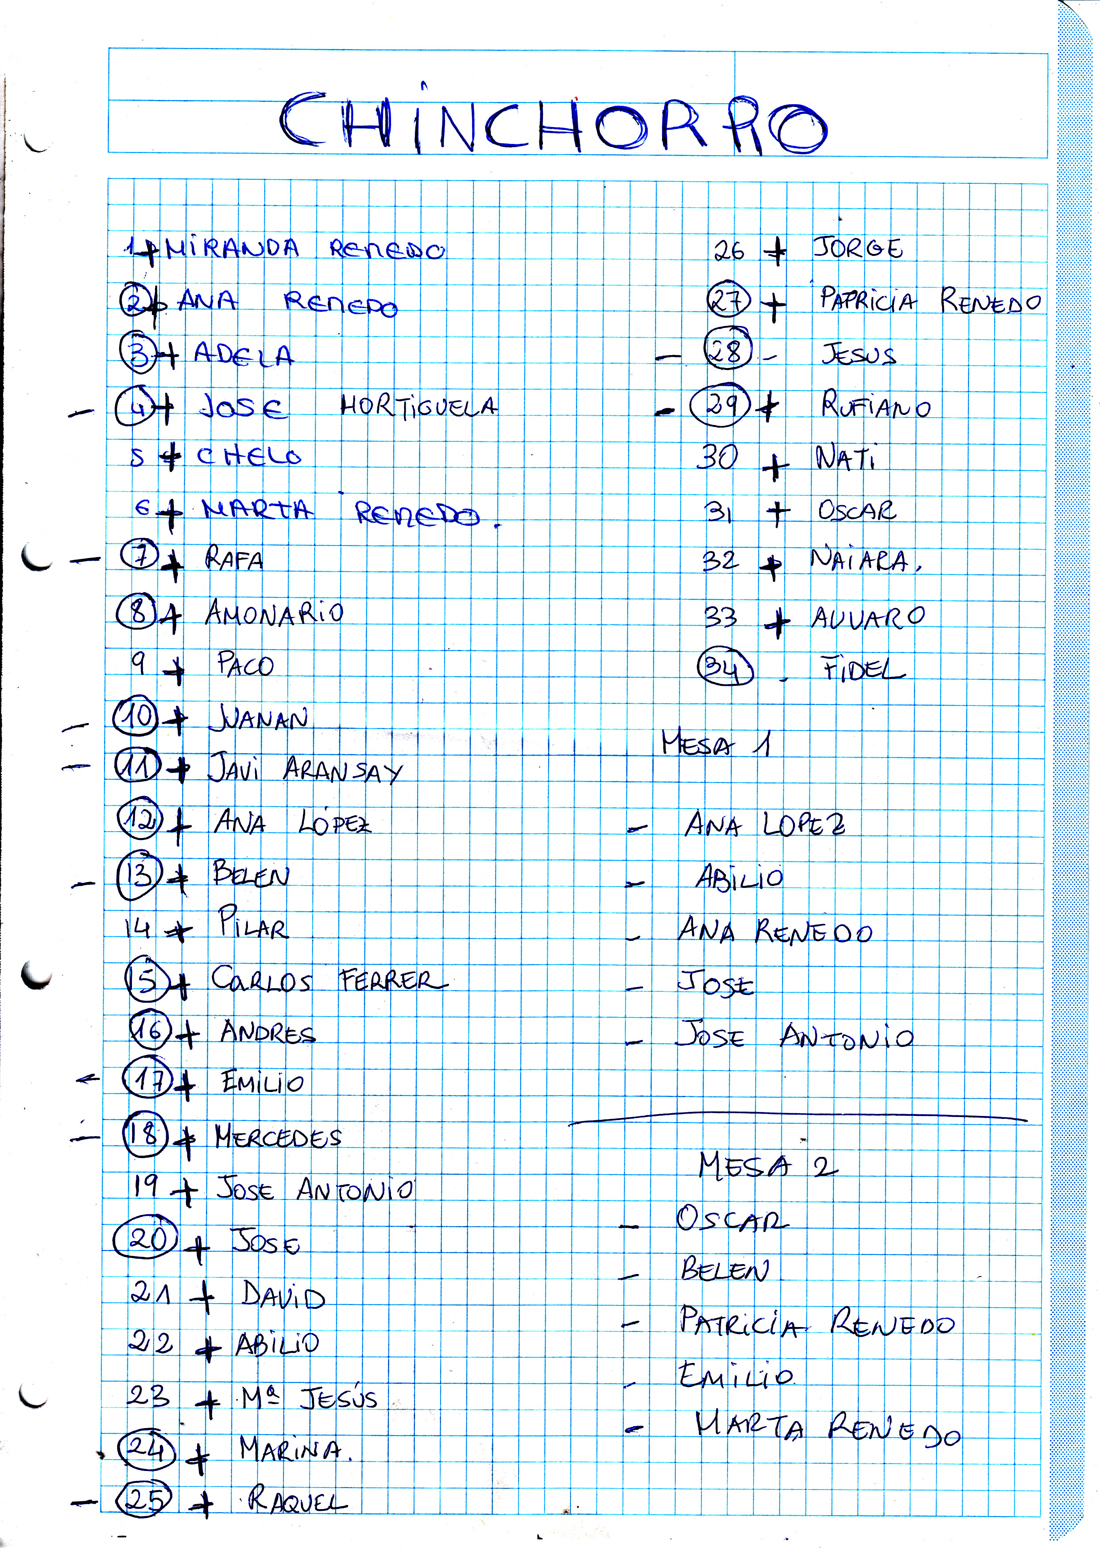 CHINCHORRO
1 + MIRANDA RENEDO
2 + ANA RENEDO
3 + ADELA
- 4 + JOSE HORTIGUELA
5 + CHELO
6 + MARTA RENEDO.
- 7 + RAFA
8 + AMONARIO
9 + PACO
- 10 + JUANAN
- 11 + JAVI ARANSAY
12 + ANA LÓPEZ
- 13 + BELEN
14 + PILAR
15 + CARLOS FERRER
16 + ANDRES
- 17 + EMILIO
- 18 + MERCEDES
19 + JOSE ANTONIO
20 + JOSE
21 + DAVID
22 + ABILIO
23 + Mª JESÚS
24 + MARINA.
- 25 + RAQUEL
26 + JORGE
27 + PATRICIA RENEDO
- 28 - JESUS
- 29 + RUFIANO
30 + NATI
31 + OSCAR
32 + NAIARA.
33 + ALVARO
34 - FIDEL
MESA 1
- ANA LOPEZ
- ABILIO
- ANA RENEDO
- JOSE
- JOSE ANTONIO
MESA 2
- OSCAR
- BELEN
- PATRICIA RENEDO
- EMILIO
- MARTA RENEDO